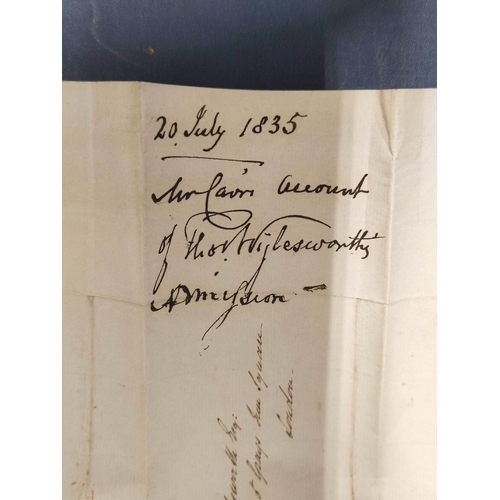 20 July 1835
Mr Cair's Account
of Thos. Wiglesworth's
Admission
Esq:
Grays Inn Square
London.